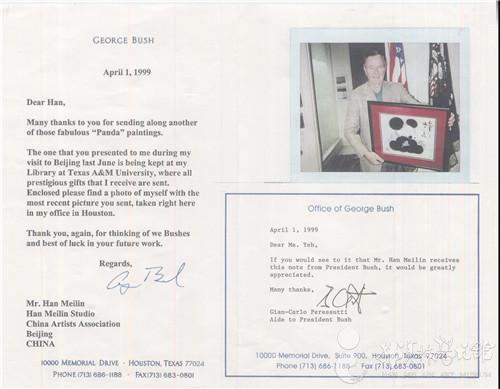 GEORGE BUSH
April 1, 1999
Dear Han,
Many thanks to you for sending along another
of those fabulous “Panda” paintings.
The one that you presented to me during my
visit to Beijing last June is being kept at my
Library at Texas A&M University, where all
prestigious gifts that I receive are sent.
Enclosed please find a photo of myself with the
most recent picture you sent, taken right here
in my office in Houston.
Thank you, again, for thinking of we Bushes
and best of luck in your future work.
Regards,
Mr. Han Meilin
Han Meilin Studio
China Artists Association
Beijing
CHINA
10000 MEMORIAL DRIVE · HOUSTON, TEXAS 77024
PHONE (713) 686-1188 · FAX (713) 683-0801
Office of George Bush
April 1, 1999
Dear Ms. Yeh,
If you would see to it that Mr. Han Meilin receives
this note from President Bush, it would be greatly
appreciated.
Many thanks,
Gian-Carlo Peressutti
Aide to President Bush
10000 Memorial Drive, Suite 900, Houston, Texas 77024
Phone (713) 686-1188 · Fax (713) 683-0801
HAN MEI LIN ART MUSEUM